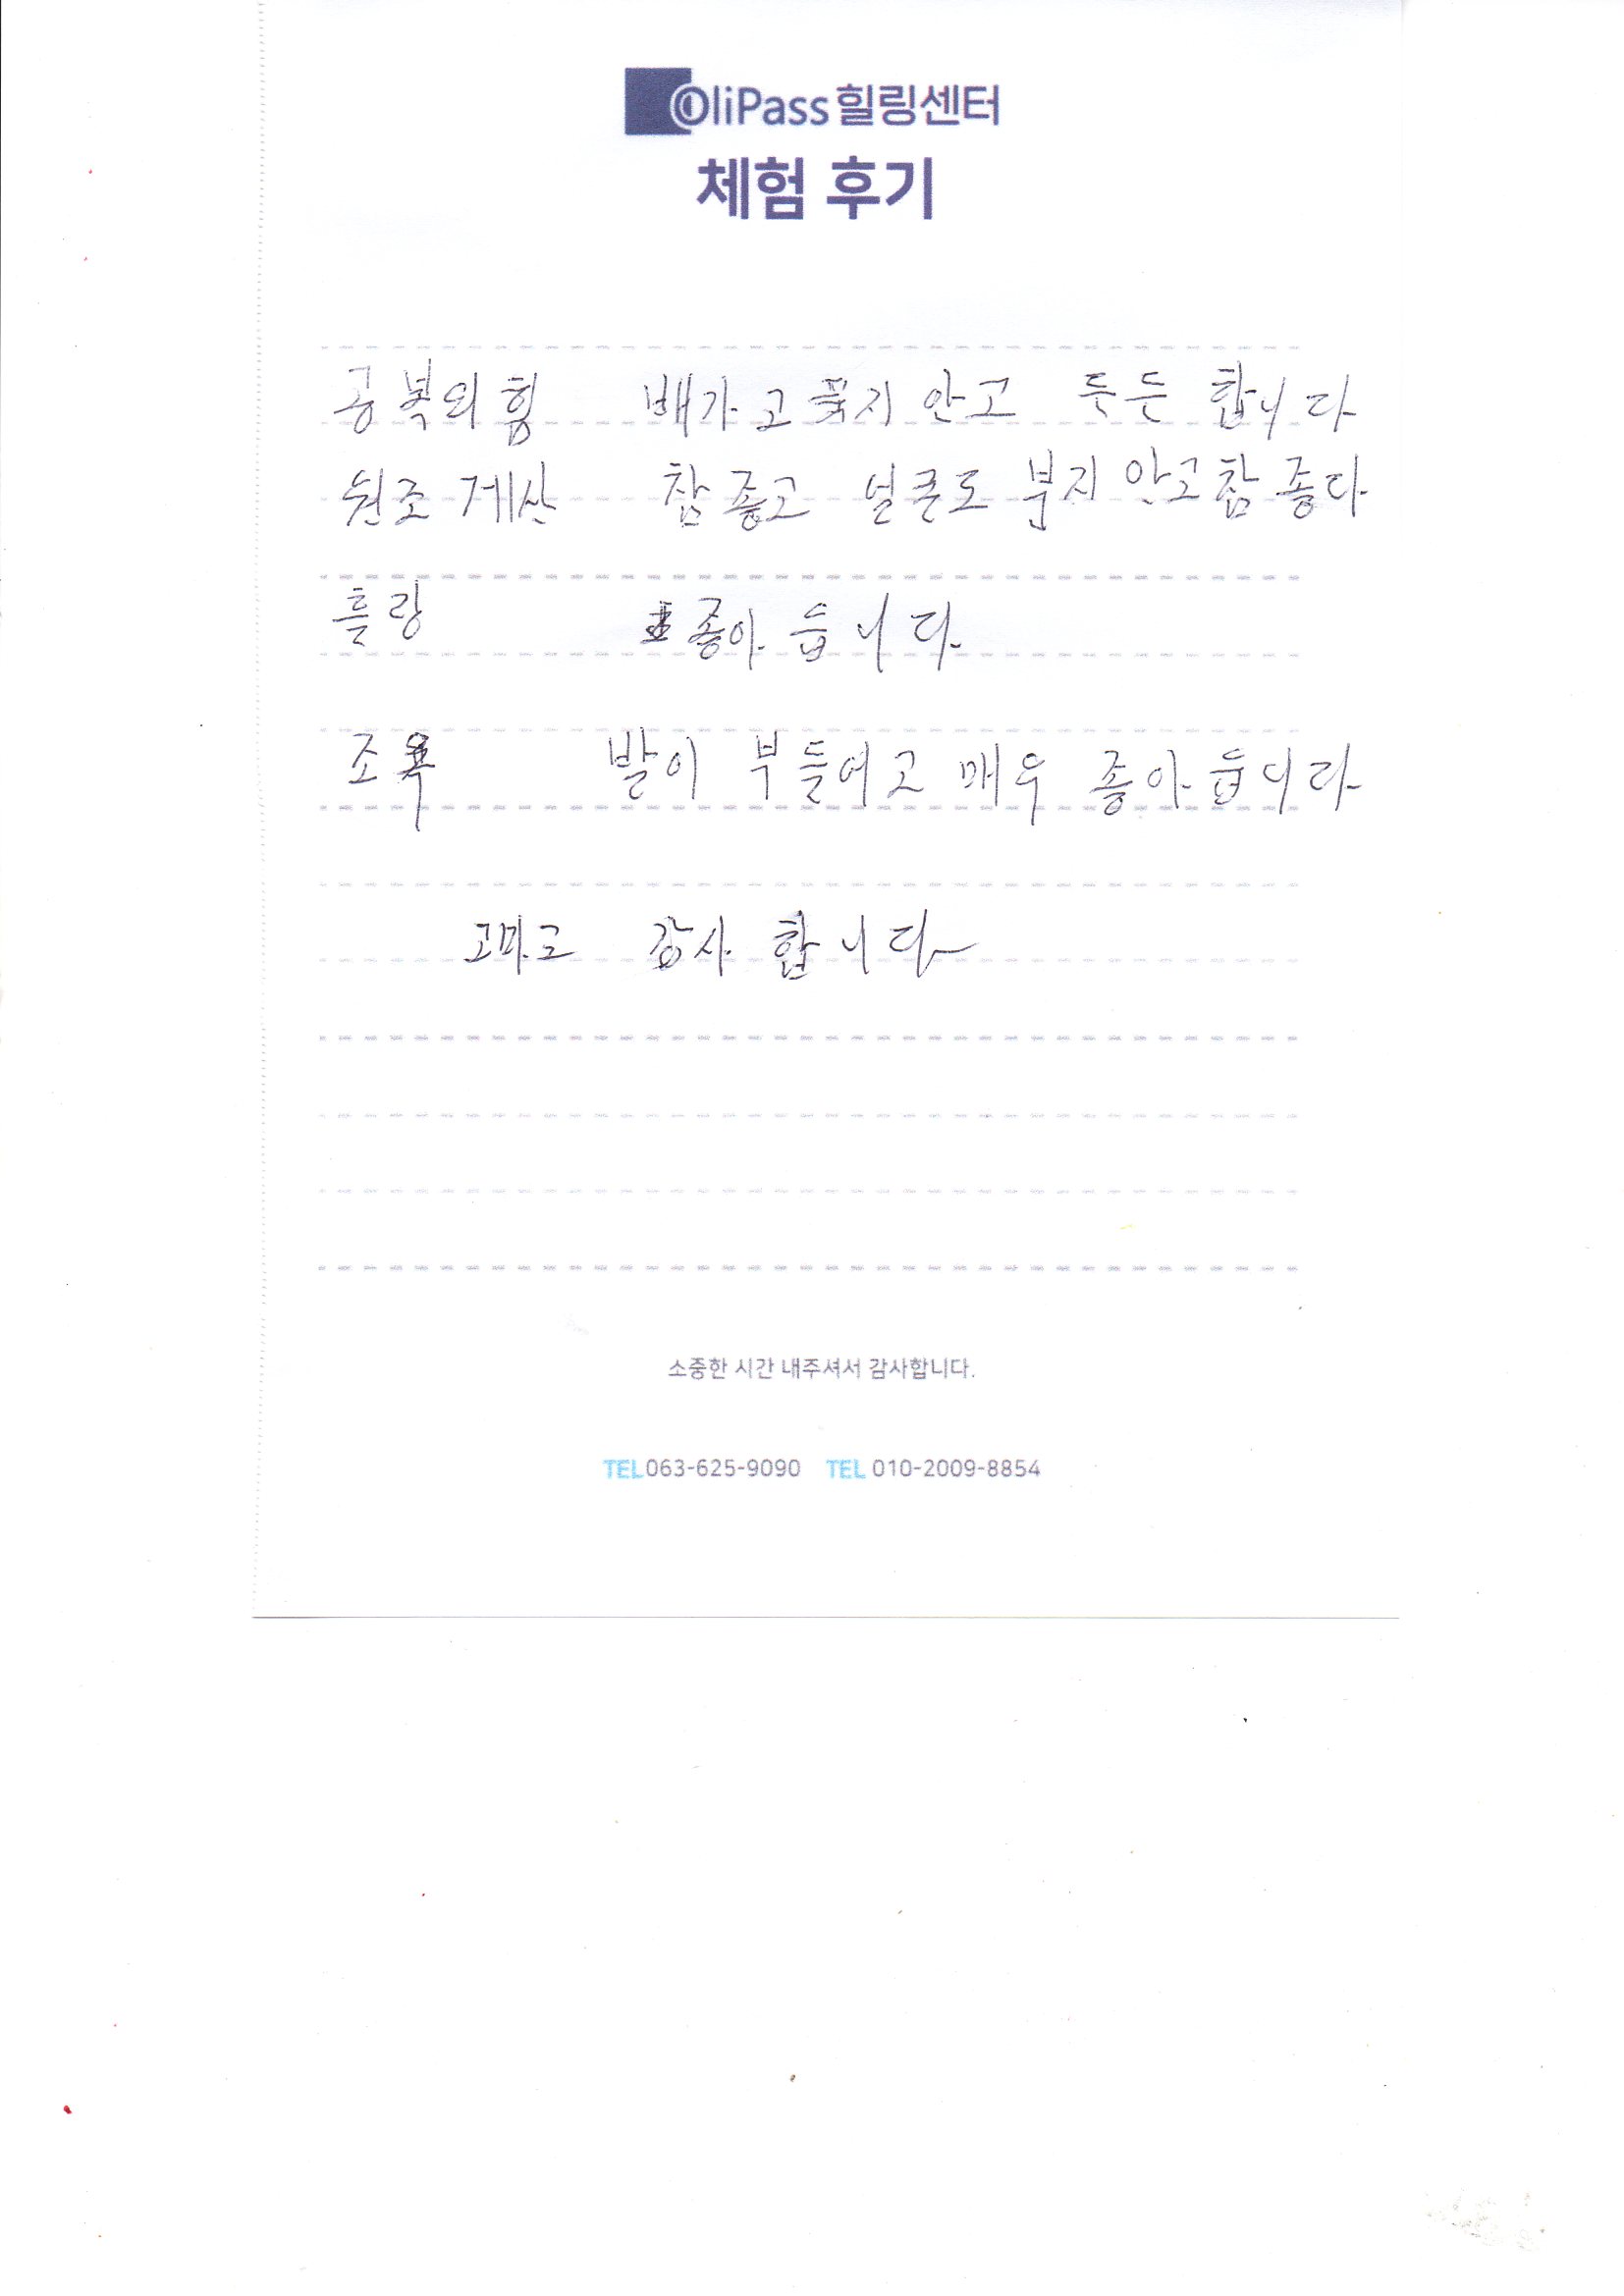 OliPass 힐링센터
체험 후기
공복의힘 배가 고푸지 안고 든든 합니다
원조 게산 참 좋고 얼큰도 부지 안고 참 좋다
흘랑 좋아 읍니다
조욕 발이 부들어고 매우 좋아 읍니다
고마고 감사 합니다
소중한 시간 내주셔서 감사합니다.
TEL 063-625-9090 TEL 010-2009-8854